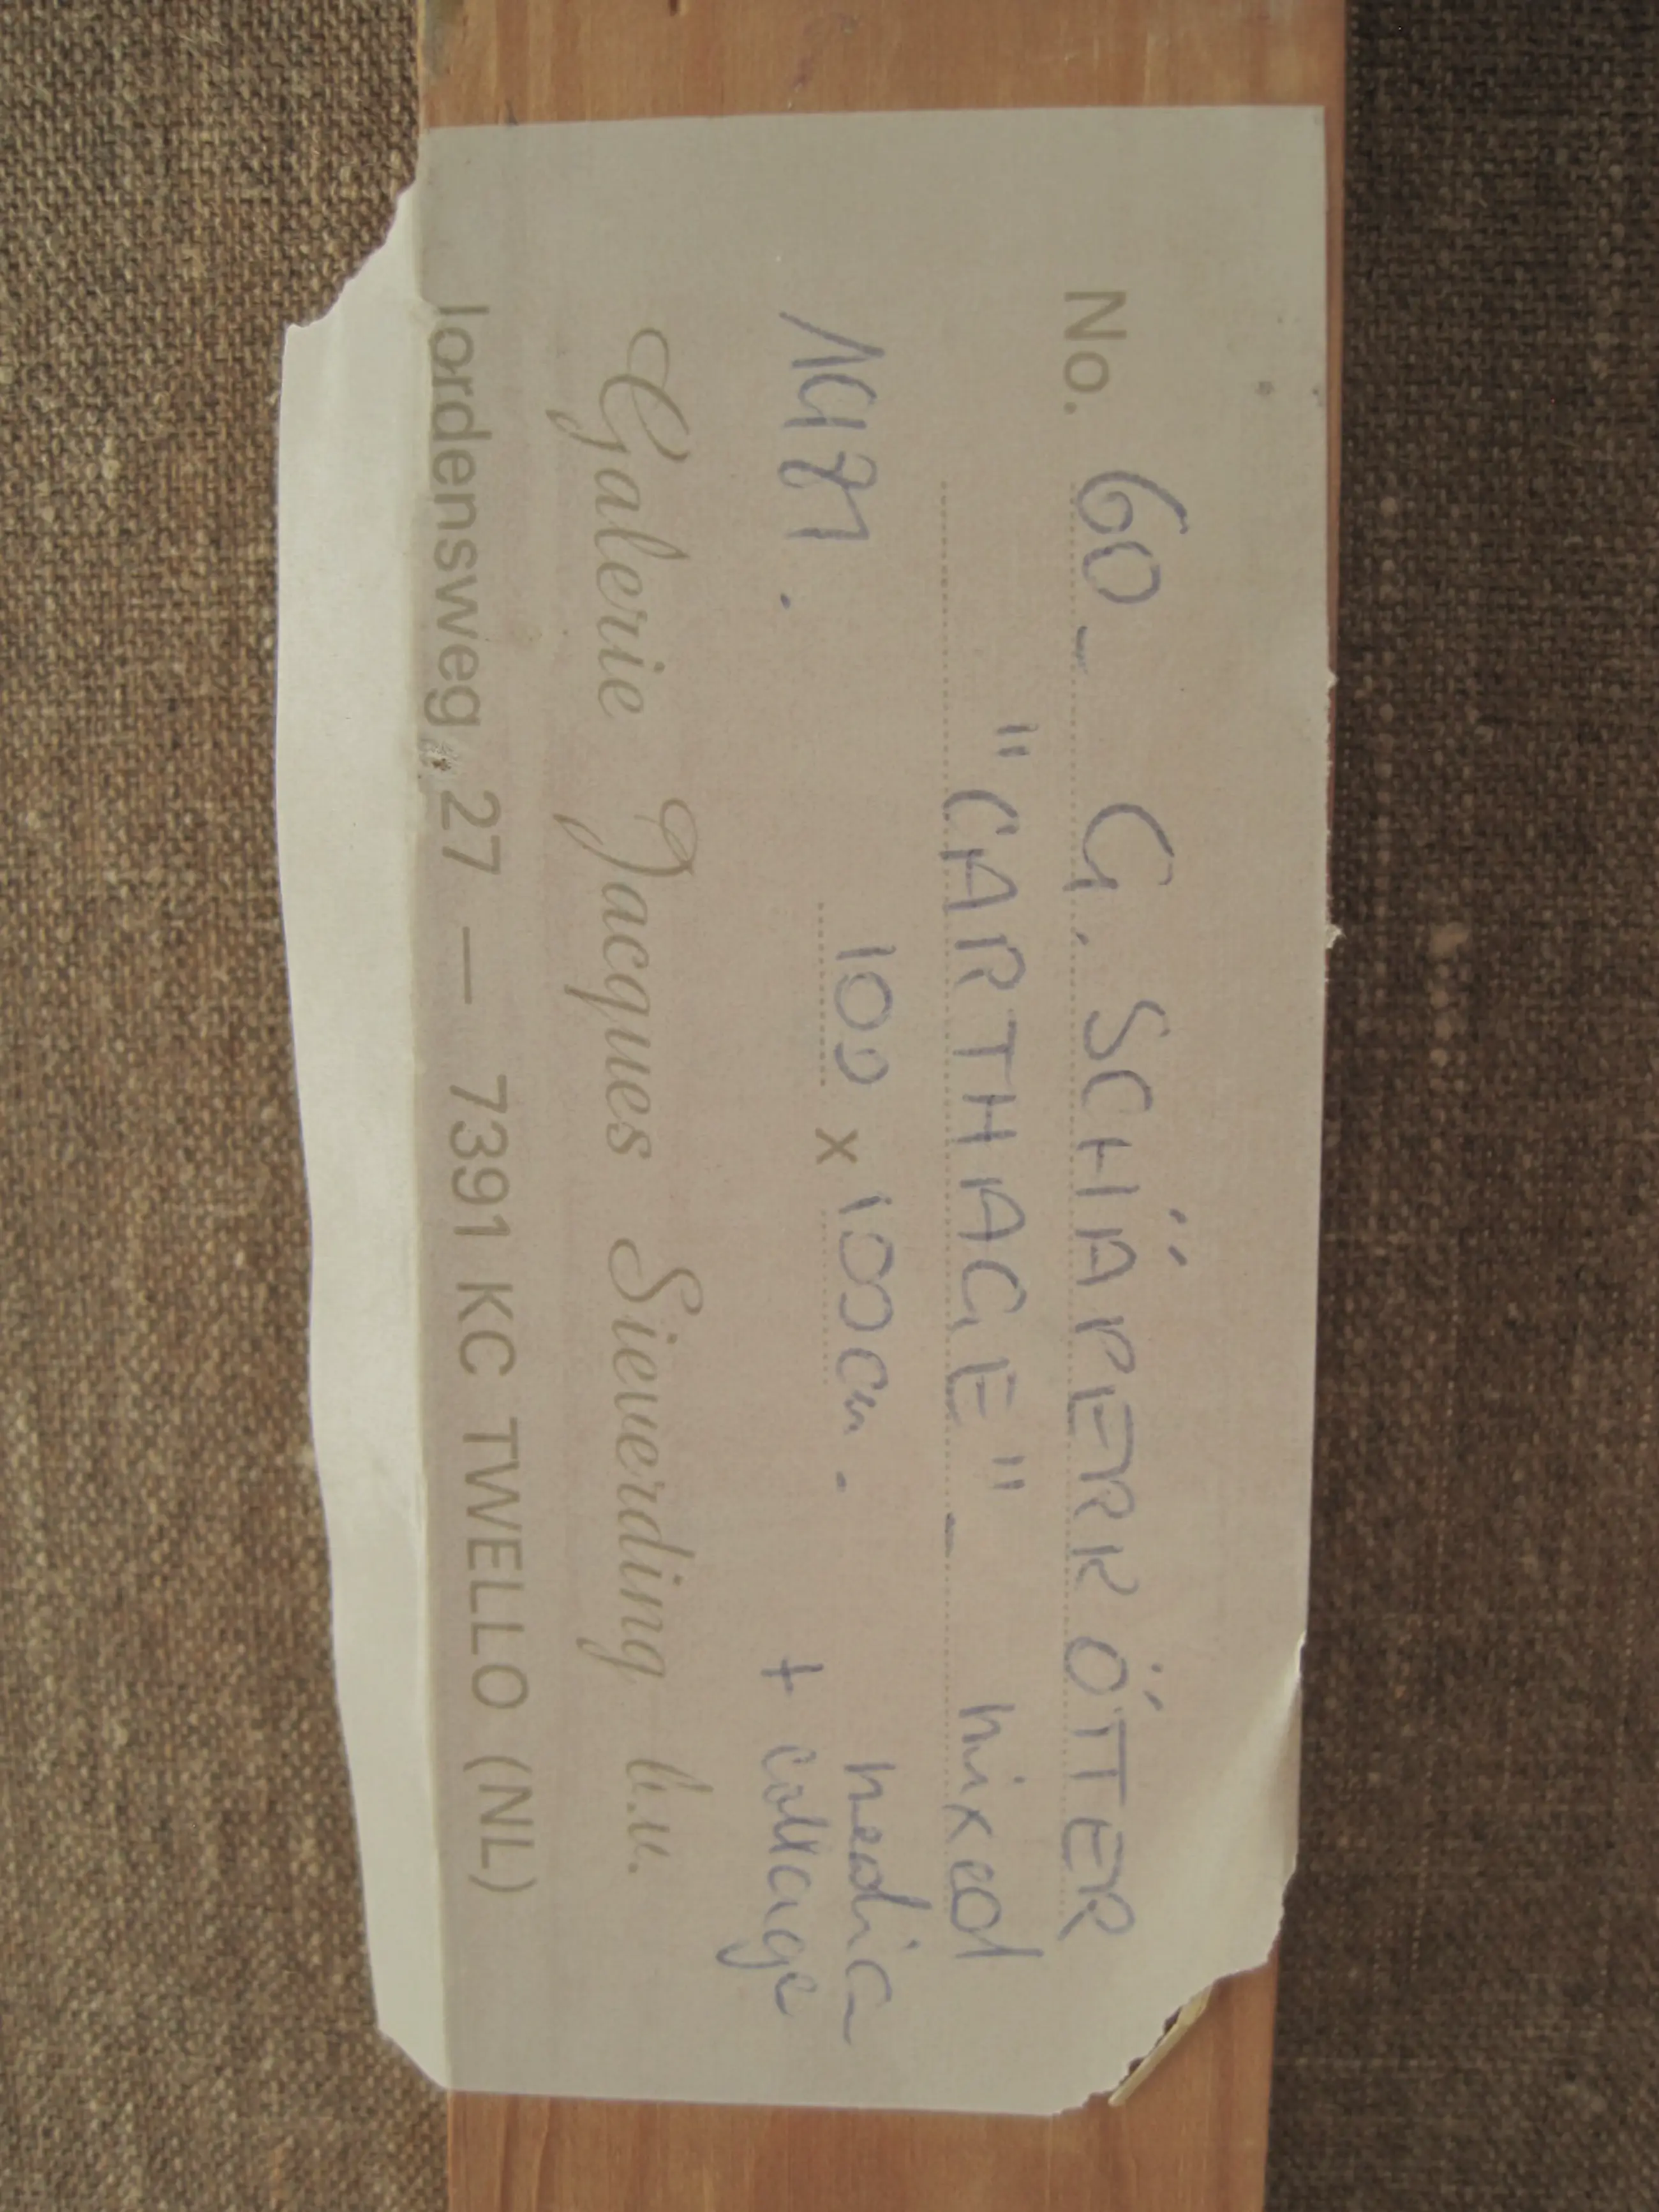 No. 60 - G. SCHÄPERKÖTTER
"CARTHAGE" - mixed
100 x 100 cm. media
+ collage
Galerie Jacques Sieverding b.v.
Iordensweg 27 — 7391 KC TWELLO (NL)